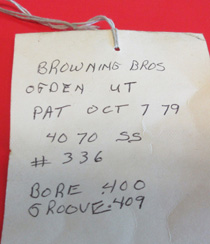 BROWNING BROS
OGDEN UT
PAT OCT 7 79
40 70 SS
# 336
BORE .400
GROOVE .409